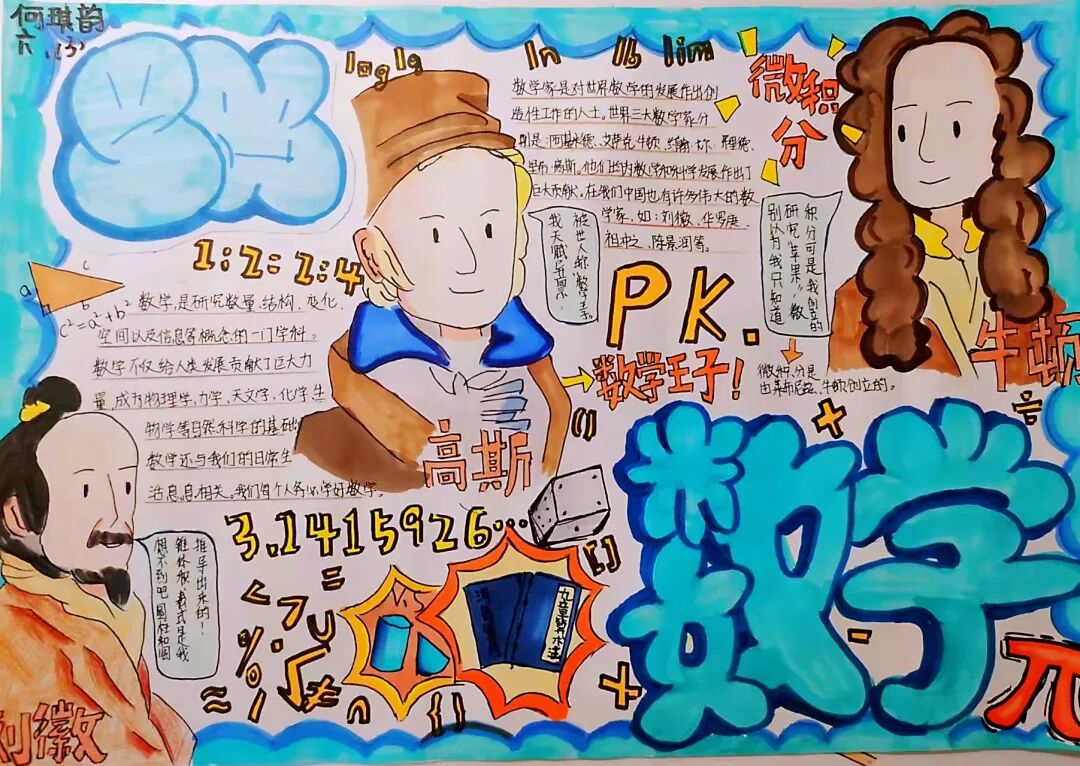 何琪韵
六.(3)
log lg ln lb lim
数学家是对世界数学的发展作出创
造性工作的人士。世界三大数学家分
别是:阿基米德、艾萨克·牛顿、约翰·卡尔·弗里德
里希·高斯。他们都为数学和科学发展作出了
巨大贡献。在我们中国也有许多伟大的数
学家,如:刘徽、华罗庚、
祖冲之、陈景润等。
微积
分
1:2=2:4
a
c
b
c²=a²+b²
数学,是研究数量、结构、变化、
空间以及信息等概念的一门学科。
数学不仅给人类发展贡献了巨大力
量,成为物理学、力学、天文学、化学、生
物学等自然科学的基础
数学还与我们的日常生
活息息相关。我们每个人务必学好数学。
被世人称“数学王子”。
我天赋异禀,
积分可是我创立的
研究“苹果”,微
别以为我只知道
PK.
数学王子!
微积分是
由莱布尼兹、牛顿创立的。
牛顿
高斯
()
+
÷
3.1415926…
推导出来的!
锥体积公式是我
想不到吧 圆柱和圆
<
=
>
%
∪
√
≈
≠
∩
{}
[]
九章算术注
+
-
数学
π
刘徽